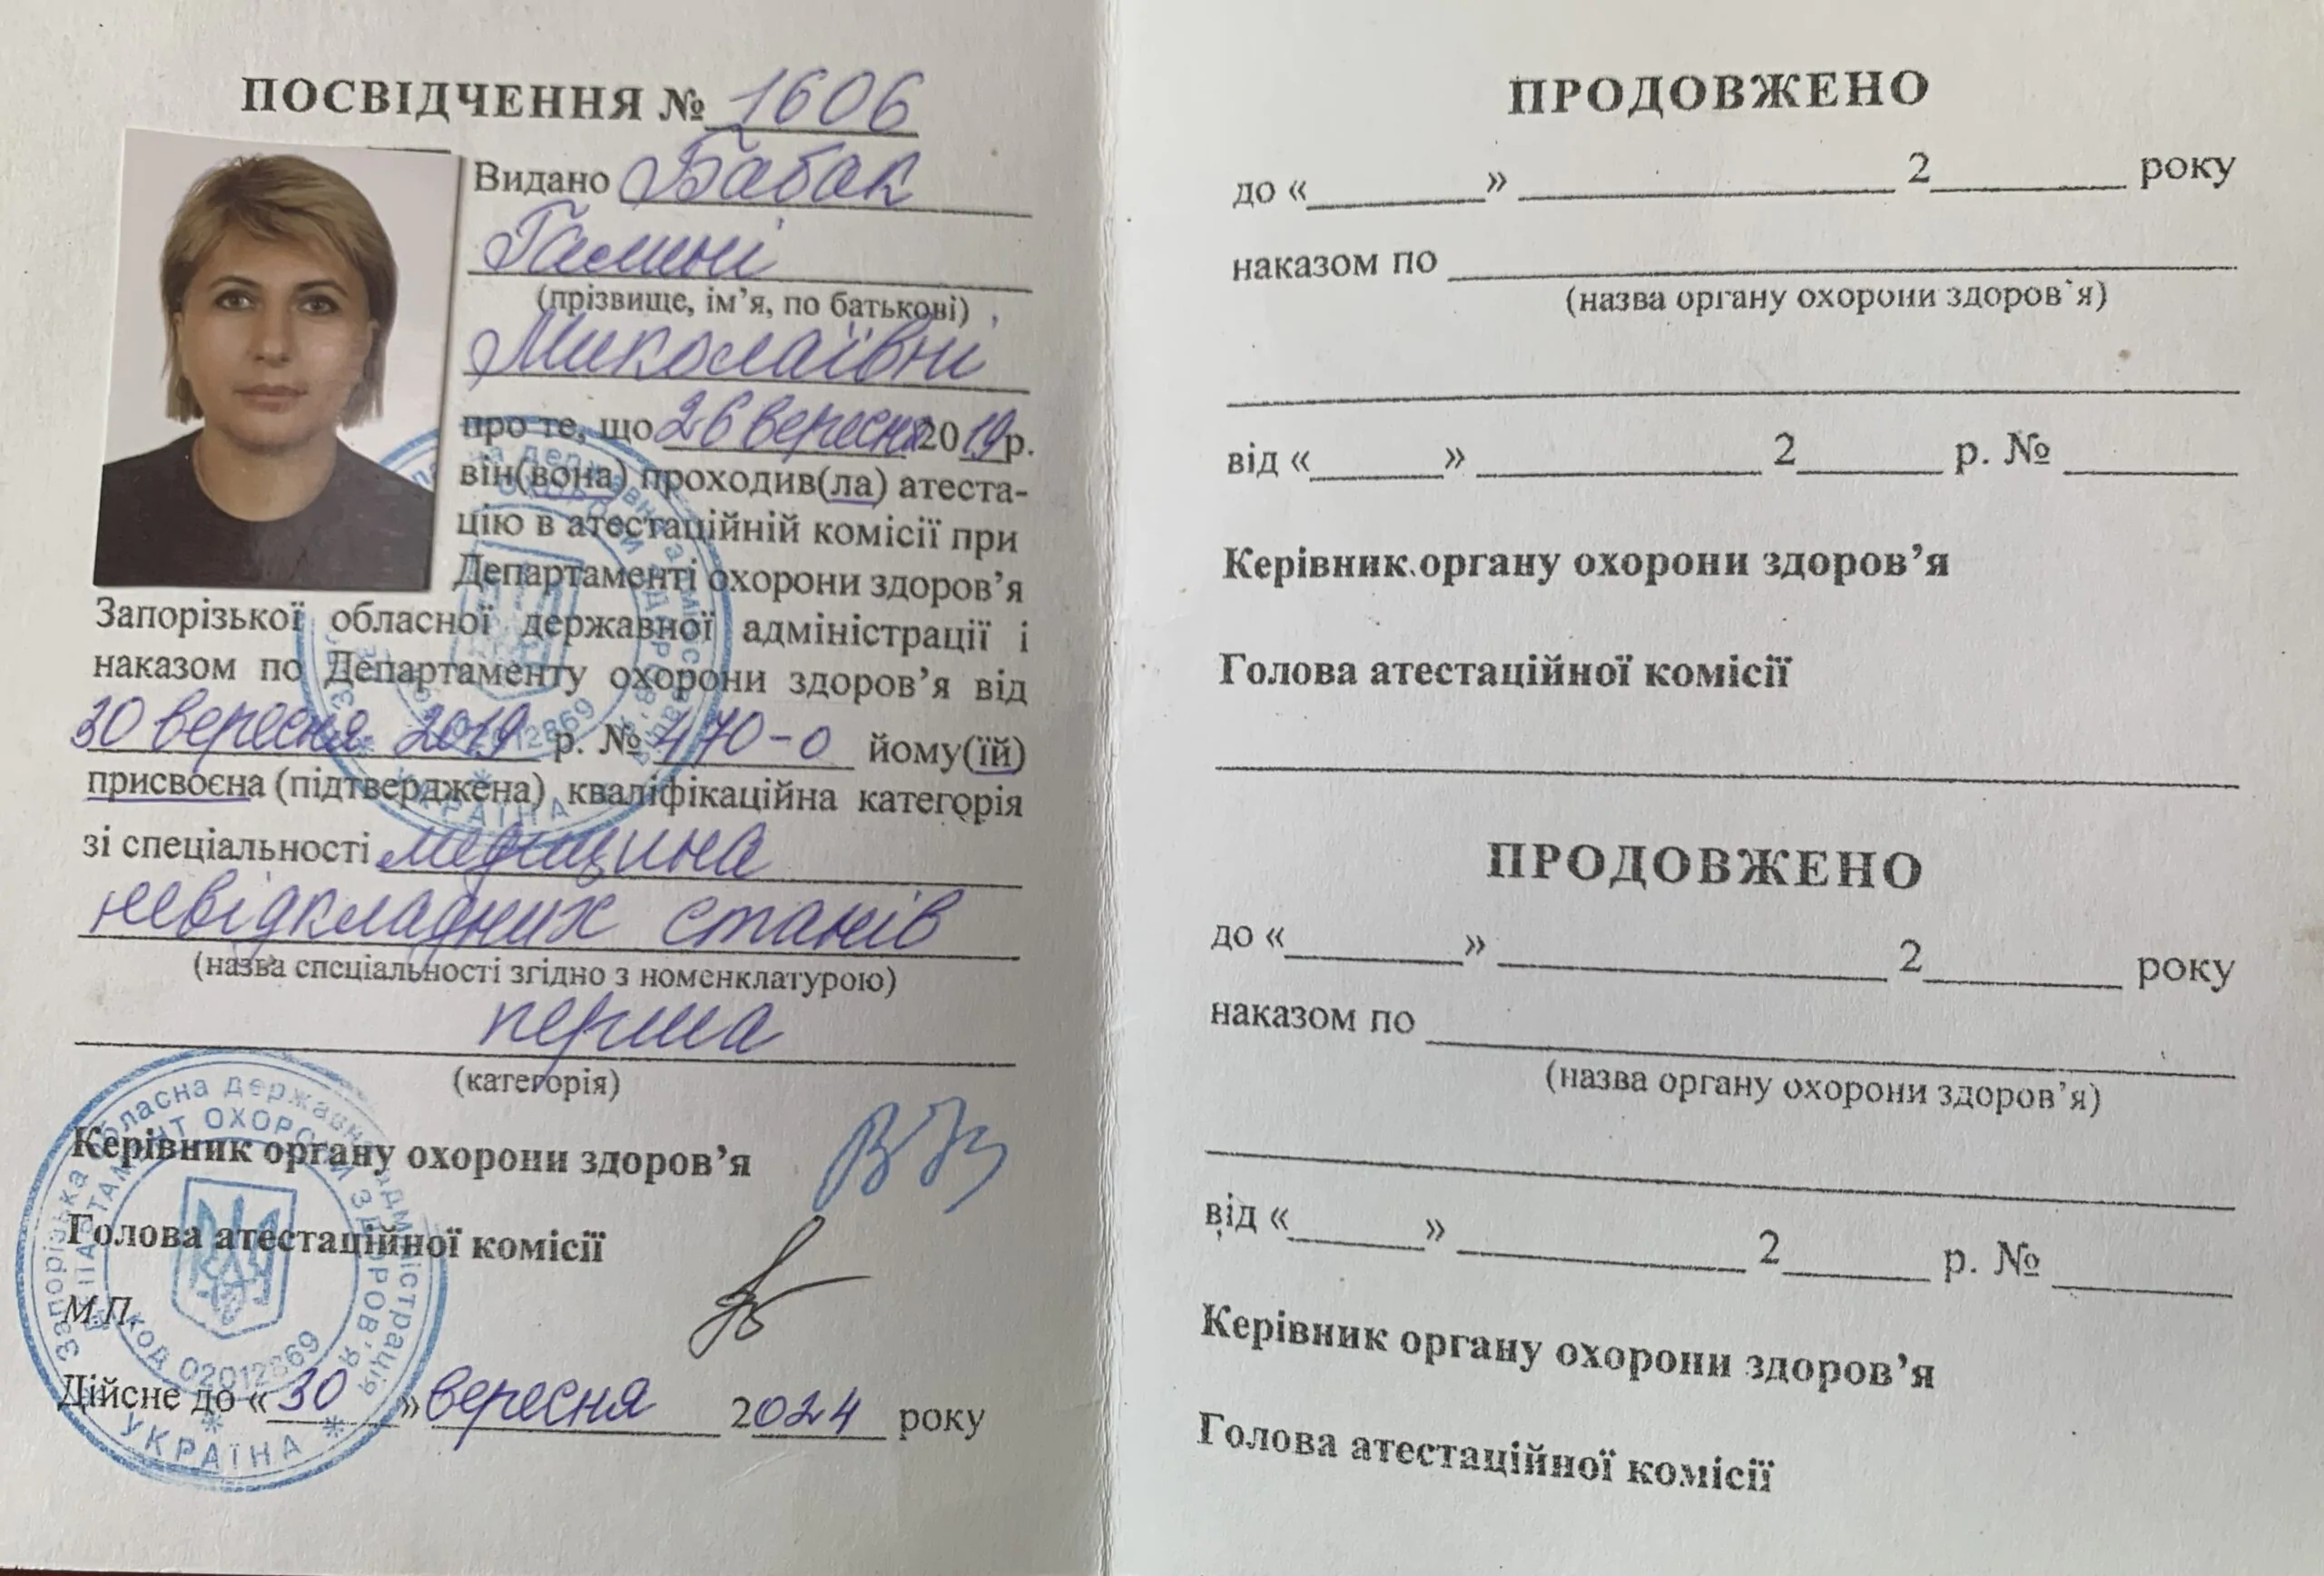 ПОСВІДЧЕННЯ № 1606
Видано Бабак
Галині
(прізвище, ім’я, по батькові)
Миколаївні
про те, що 26 вересня 2019 р.
він(вона) проходив(ла) атеста-
цію в атестаційній комісії при
Департаменті охорони здоров’я
Запорізької обласної державної адміністрації і
наказом по Департаменту охорони здоров’я від
30 вересня 2019 р. № 470-о йому(їй)
присвоєна (підтверджена) кваліфікаційна категорія
зі спеціальності медицина
невідкладних станів
(назва спеціальності згідно з номенклатурою)
перша
(категорія)
Керівник органу охорони здоров’я
Голова атестаційної комісії
М.П.
Дійсне до «30» вересня 2024 року
Запорізька обласна державна адміністрація
ДЕПАРТАМЕНТ ОХОРОНИ ЗДОРОВ’Я
Код 02012869
* УКРАЇНА *
ПРОДОВЖЕНО
до «______» ____________ 2______ року
наказом по ____________
(назва органу охорони здоров`я)
від «______» ____________ 2______ р. № ______
Керівник органу охорони здоров’я
Голова атестаційної комісії
ПРОДОВЖЕНО
до «______» ____________ 2______ року
наказом по ____________
(назва органу охорони здоров’я)
від «______» ____________ 2______ р. № ______
Керівник органу охорони здоров’я
Голова атестаційної комісії